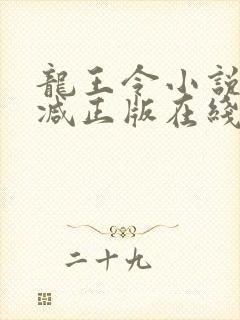 龍王令小說
减正版在綫
二十九